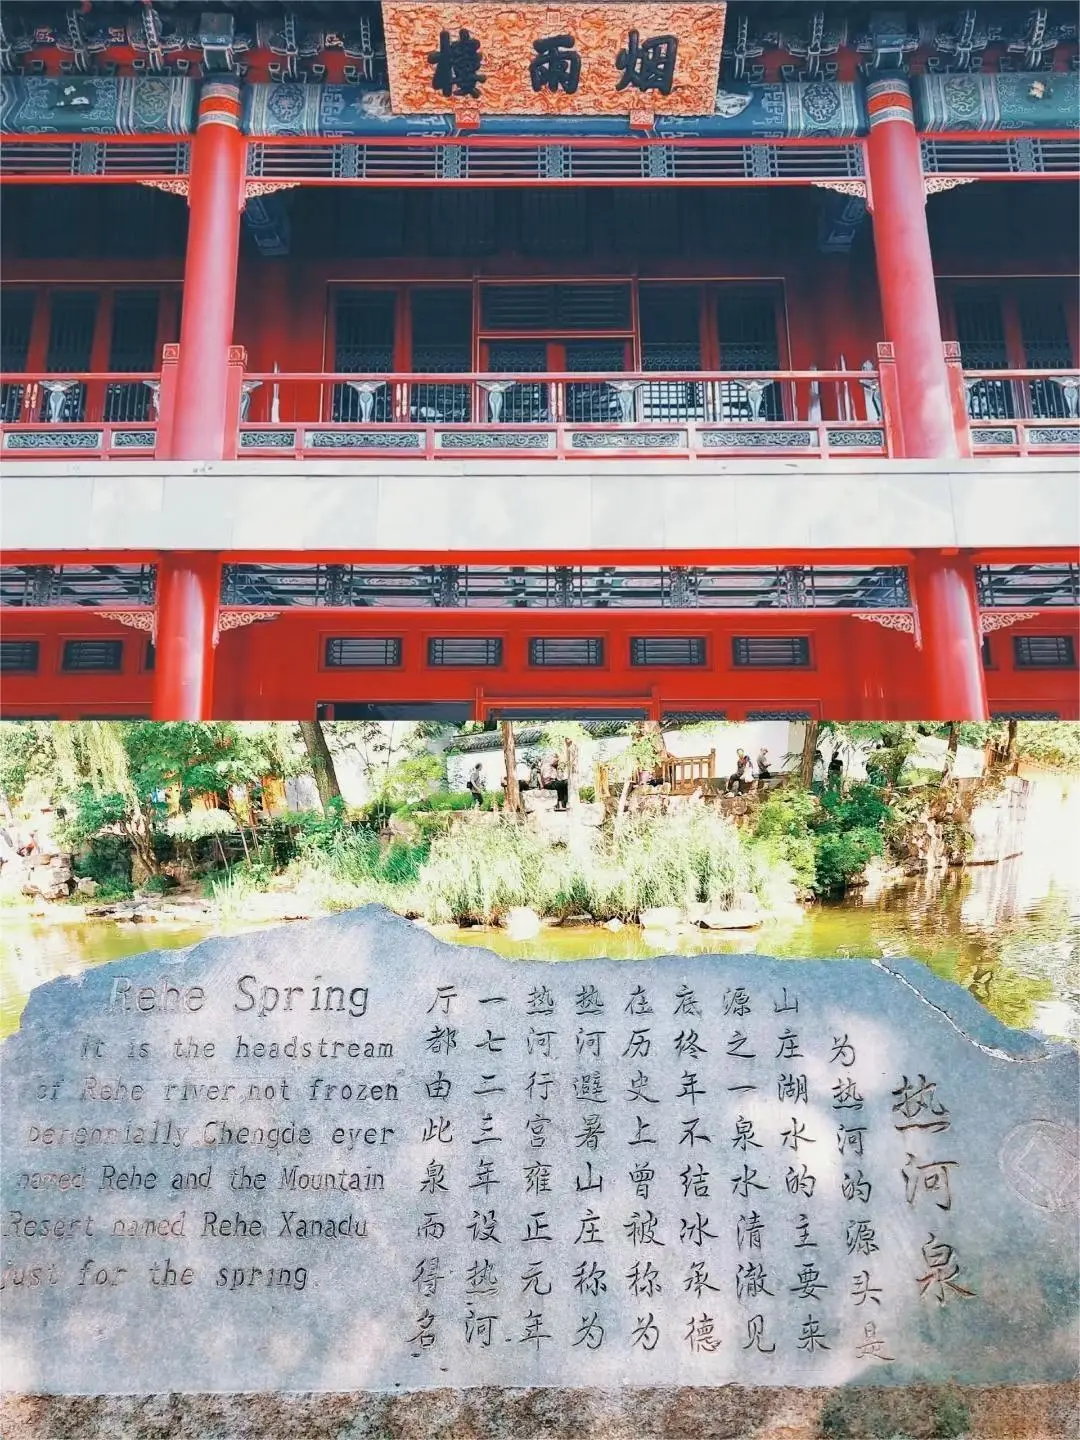 烟雨樓
热河泉
为热河的源头是
山庄湖水的主要来
源之一泉水清澈见
底终年不结冰承德
在历史上曾被称为
热河避暑山庄称为
热河行宫雍正元年
一七二三年设热河
厅都由此泉而得名
Rehe Spring
It is the headstream
of Rehe river,not frozen
perennially.Chengde ever
named Rehe and the Mountain
Resert named Rehe Xanadu
just for the spring.